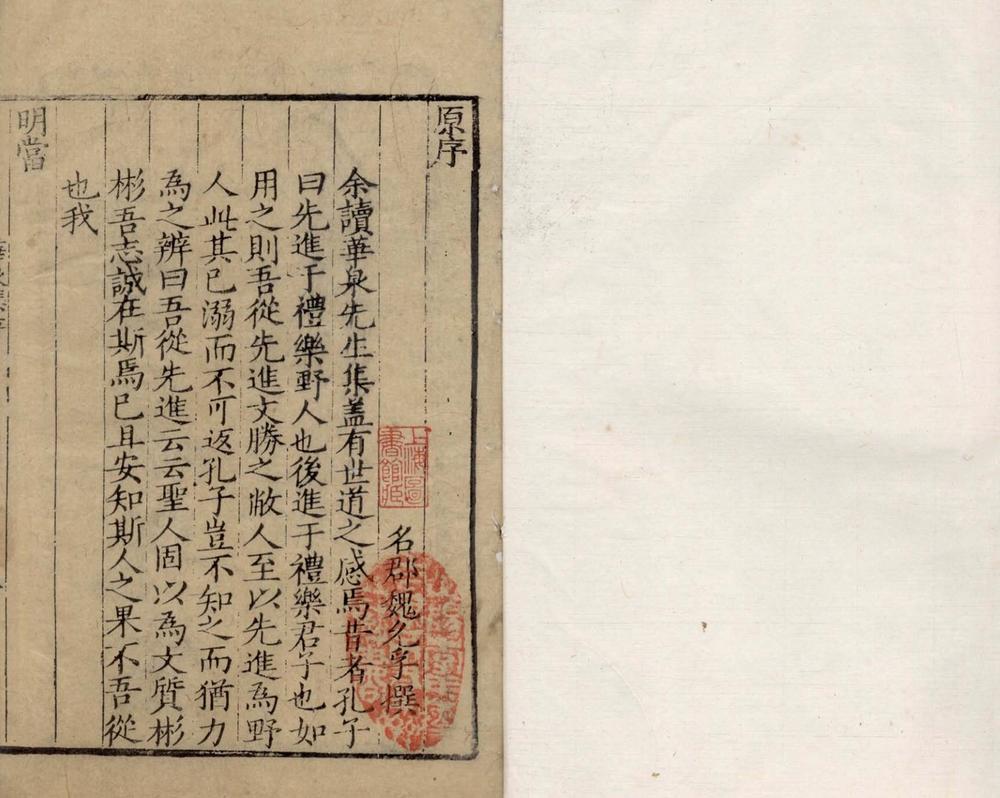 原序
名郡魏允孚撰
余讀華泉先生集盖有世道之感焉昔者孔子
曰先進于禮樂野人也後進于禮樂君子也如
用之則吾從先進文勝之敝人至以先進為野
人此其已溺而不可返孔子豈不知之而猶力
為之辨曰吾從先進云云聖人固以為文質彬
彬吾志誠在斯焉已且安知斯人之果不吾從
也我
明當
上海圖
書館藏